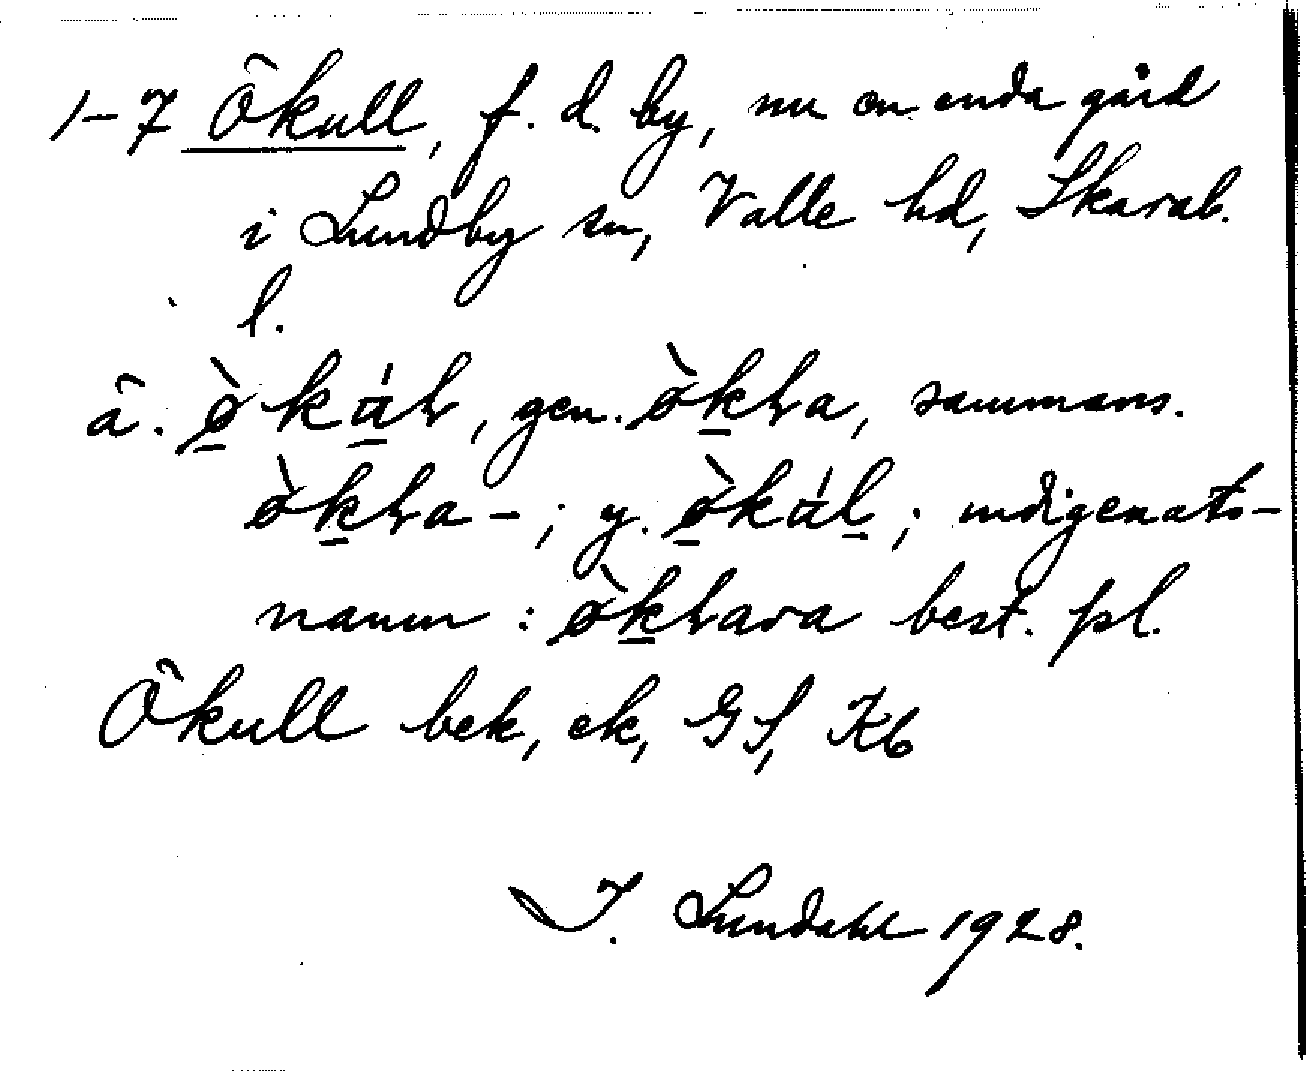 1-7 Ökull, f. d. by, nu en enda gård
i Lundby sn, Valle hd, Skarab.
l.
ä. ø̀kál, gen. ø̀kla, sammans.
ø̀kla-; y. ø̀kál; indigenats-
namn: ø̀klara best. pl.
Ökull bek, ek, GS, Kb
I. Lundahl 1928.